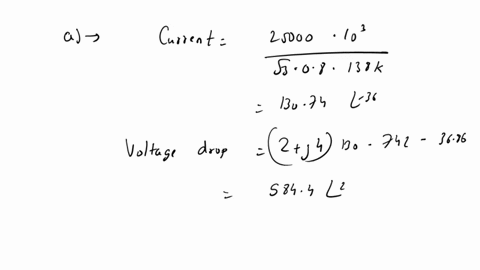 a) → Current = 25000 · 10³ / √3 · 0.8 · 138k
= 130.74 ∠-36
Voltage drop = (2+j4) 130 · 74∠ - 36.86
= 584.4 ∠2